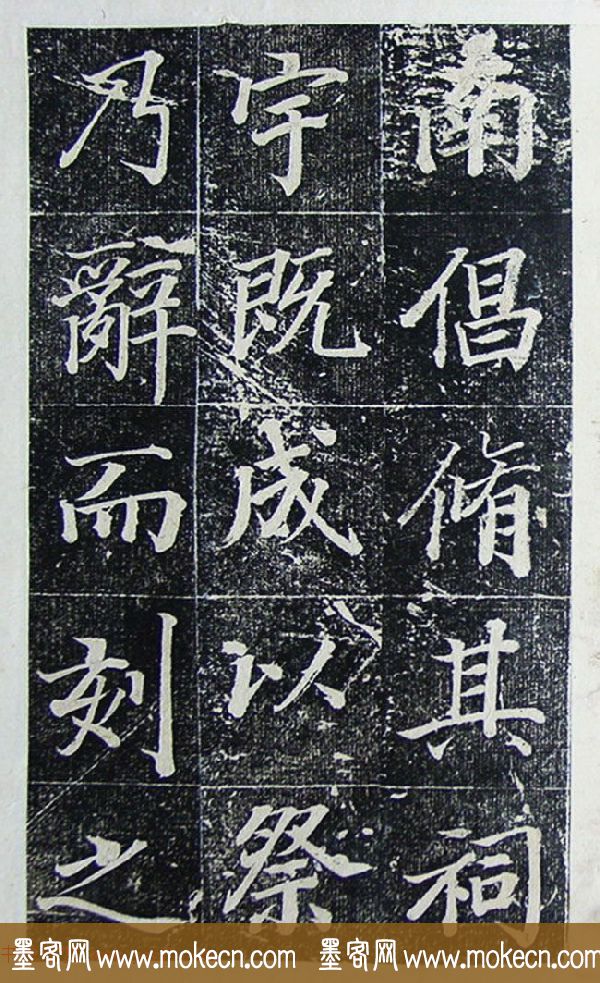 南倡脩其祠
宇既成以祭
乃辭而刻之
墨客网 www.mokecn.com 墨客网 www.mokecn.com